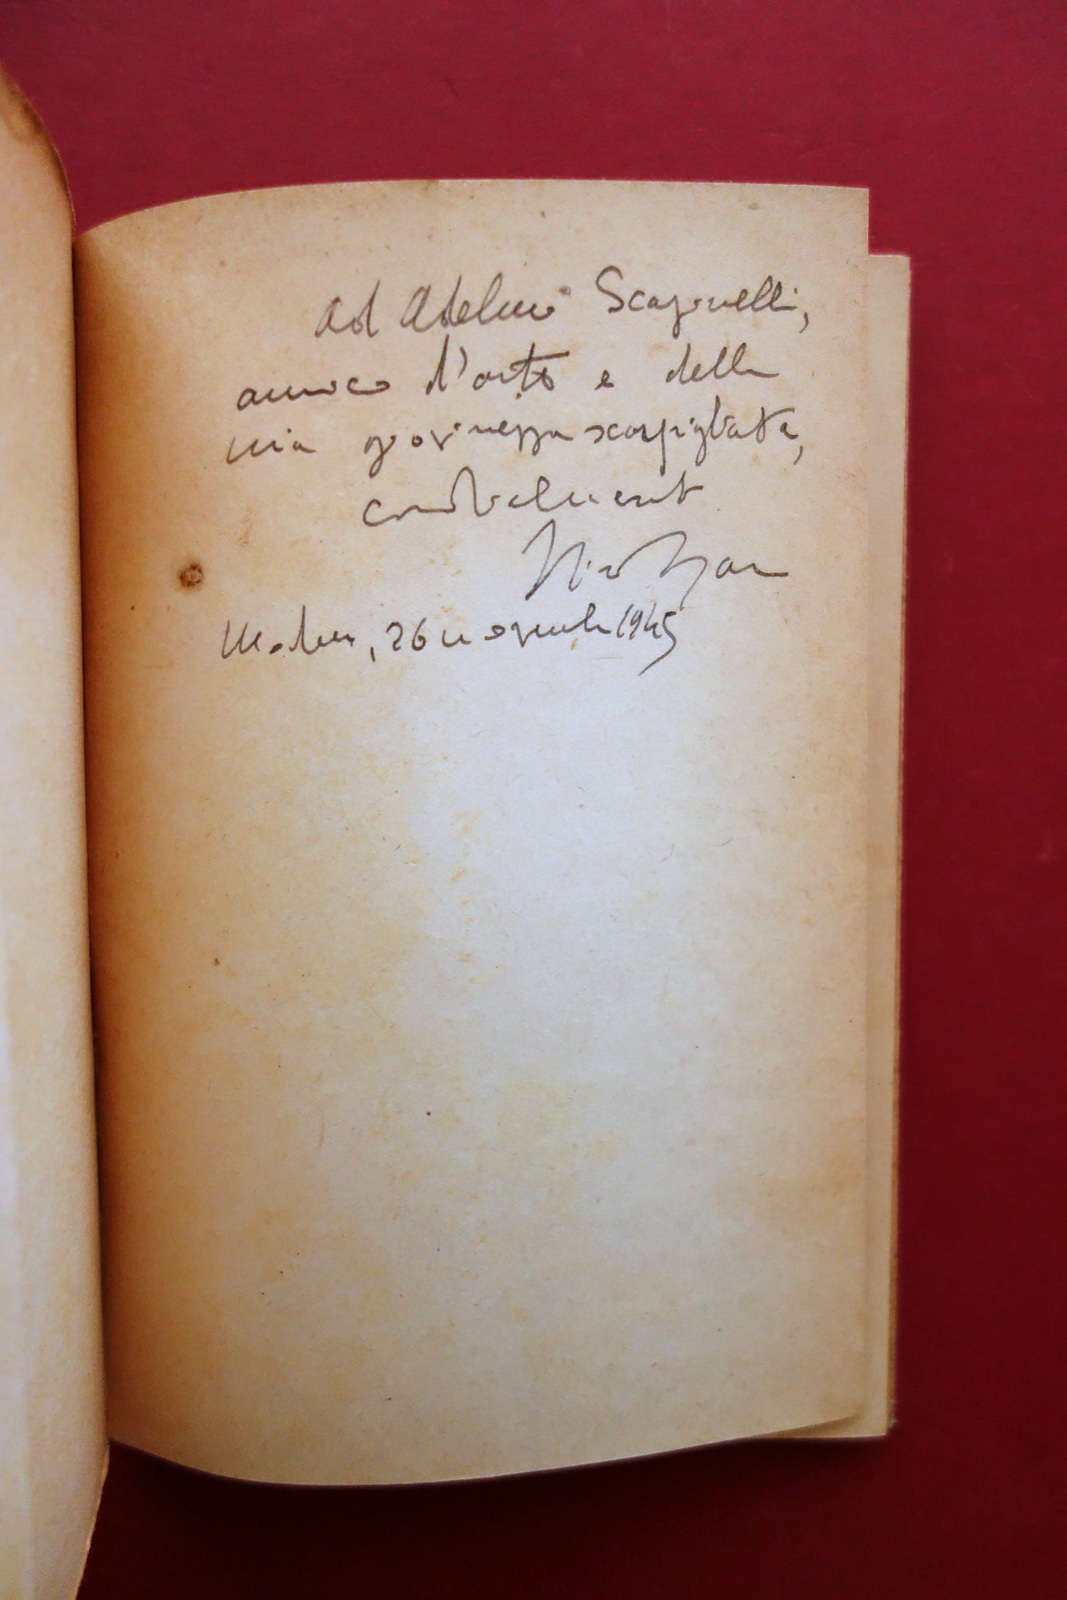 Ad Adelmo Scapinelli,
amico d'arte e della
mia giovinezza scapigliata,
cordialmente
Modena, 26 novembre 1945